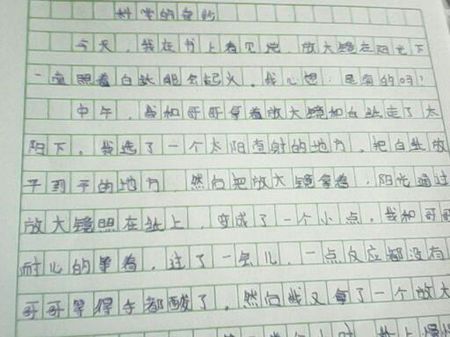 科学的奇妙
今天,我在书上看见把放大镜在阳光下
一直照着白纸能会起火。我心想:是真的吗?
中午,我和哥哥拿着放大镜和白纸走了太
阳下。我选了一个太阳直射的地方,把白纸放
于到干的地方,然后把放大镜拿着,阳光通过
放大镜照在纸上,变成了一个小点。我和哥哥
耐心的等着,过了一会儿,一点反应都没有
哥哥等得手都酸了,然后我又拿了一个放大